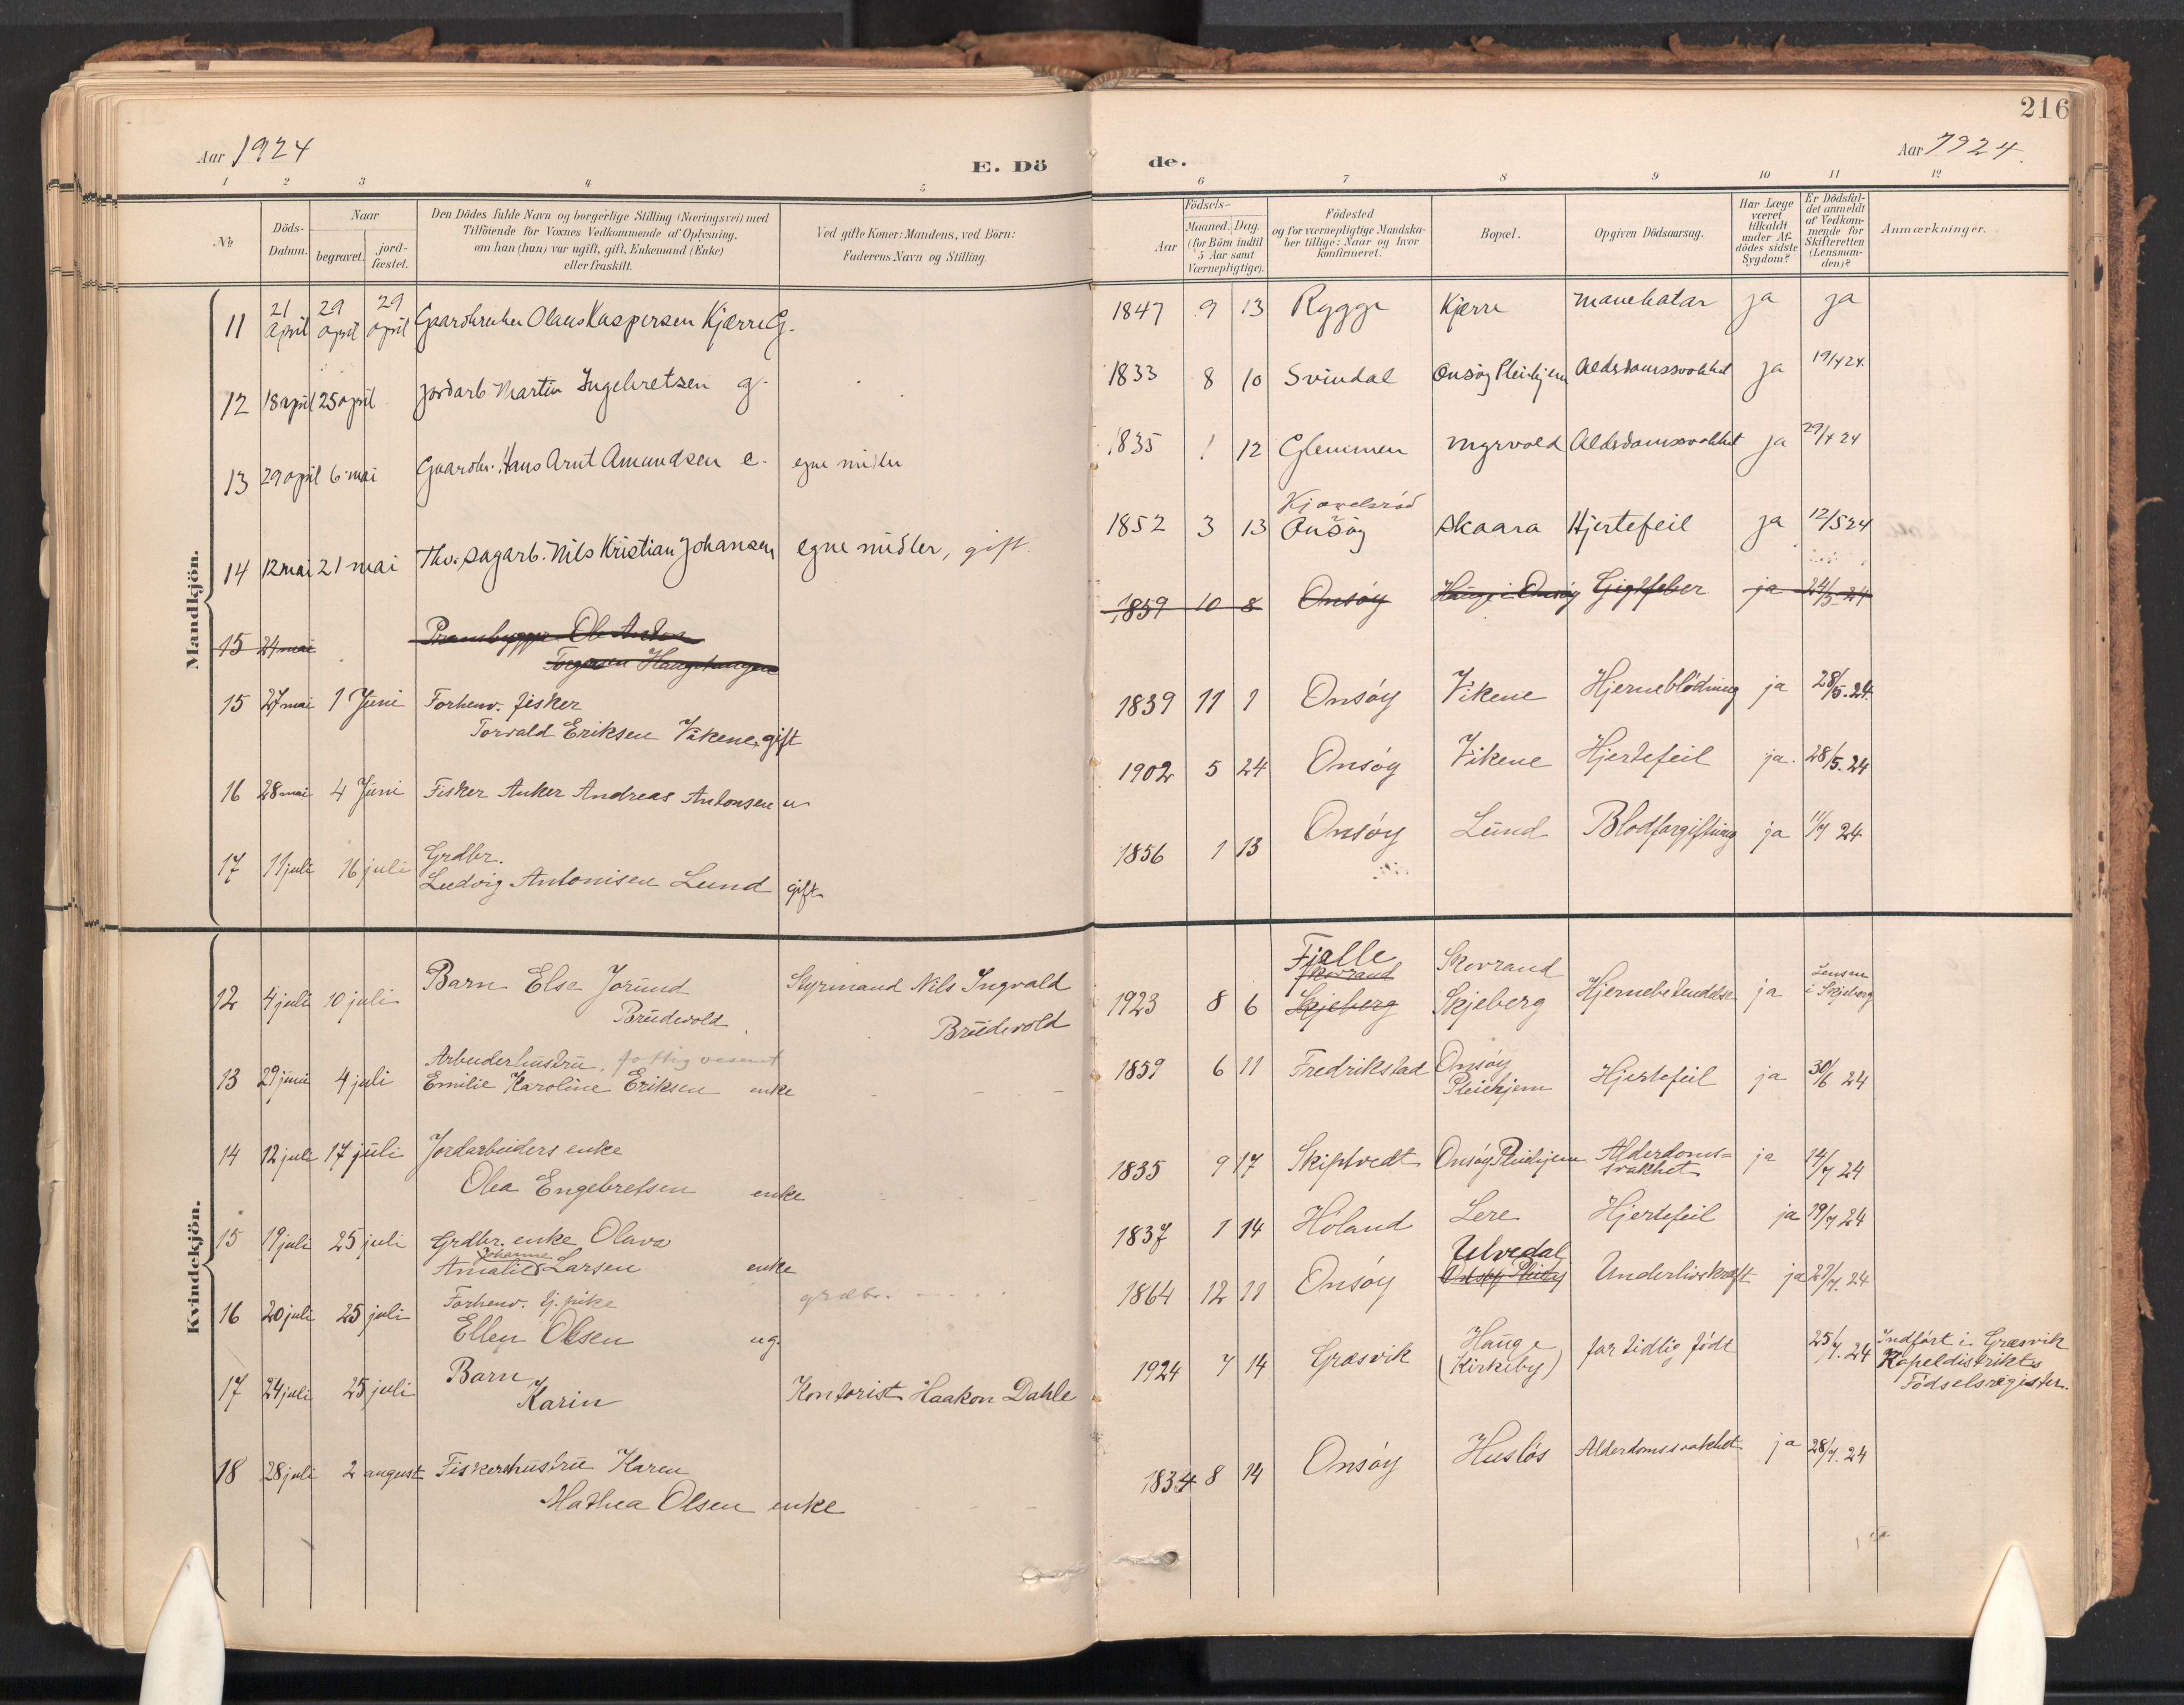 216
Aar 1924
E. Dö
de.
Aar 1924.
1 2 3 4 5 6 7 8 9 10 11 12
No
Döds-
Datum.
Naar
begravet.
jord-
fæstet.
Den Dödes fulde Navn og borgerlige Stilling (Næringsvei) med
Tilföiende for Voxnes Vedkommende af Oplysning,
om han (hun) var ugift, gift, Enkemand (Enke)
eller fraskilt.
Ved gifte Koner: Mandens, ved Börn:
Faderens Navn og Stilling.
Födsels-
Aar
Maaned. Dag.
(for Börn indtil
5 Aar samt
Værnepligtige).
Födested
og for værnepligtige Mandska-
ber tillige: Naar og hvor
konfirmeret.
Bopæl.
Opgiven Dödsaarsag.
Har Læge
været
tilkaldt
under Af-
dödes sidste
Sygdom?
Er Dödsfal-
det anmeldt
af Vedkom-
mende for
Skifteretten
(Lensman-
den)?
Anmærkninger.
Mandkjön.
11 21 april 29 april 29 april Gaardbruker Olaus Kaspersen Kjærre G. 1847 9 13 Rygge Kjærre ja ja
12 18 april 25 april Jordarb. Martin Ingebretsen g. 1833 8 10 Svindal Onsøy Pleiehjem Alderdomssvakhet ja 19/4 24.
13 29 april 6 mai Gaardbr. Hans Arnt Amundsen e. egne midler 1835 1 12 Glemmen Myrvold Alderdomssvakhet ja 29/4 24
14 12 mai 21 mai Fhv. sagarb. Nils Kristian Johansen egne midler, gift. 1852 3 13 Onsøy Skaara Hjertefeil ja 12/5 24
15 24 mai Ole Anton
1859 10 8 Onsøy Hauge i Onsøy Gigtfeber ja 24/5 24
15 27 mai 1 Juni Forhenv. fisker
Torvald Eriksen Vikene, gift 1839 11 1 Onsøy Vikene Hjerneblödning ja 28/5. 24.
16 28 mai 4 Juni Fisker Anker Andreas Antonsen u 1902 5 24 Onsøy Vikene Hjertefeil ja. 28/5. 24
17 11 juli 16 juli Grdbr.
Ludvig Antonisen Lund gift 1856 1 13 Onsøy Lund Blodforgiftning ja 11/7 24
Kvindekjön.
12 4 juli 10 juli Barn Else Jorund
Brudevold Styrmand Nils Ingvald
Brudevold 1923 8 6 Fjelle
Skovrand
Skjeberg Skovrand
Skjeberg Hjernebetendelse ja Lensm
i Skjeberg
13 29 juni 4 juli Arbeiderhustru, fattigvesenet
Emilie Karoline Eriksen enke 1859 6 11 Fredrikstad Onsøy
Pleiehjem Hjertefeil ja 30/6 24
14 12 juli 17 juli Jordarbeiders enke
Olea Engebretsen enke 1835 9 17 Skiptvedt Onsøy Pleiehjem Alderdoms-
svakhet ja 14/7 24
15 19 juli 25 juli Grdbr. enke Olava
Johanne
Amalie Larsen enke 1837 1 14 Höland Lere Hjertefeil ja 19/7 24
16 20 juli 25 juli Forhenv. tj. pike
Ellen Olsen ug. grdbr. 1864 12 11 Onsøy Ulvedal
Onsøy Pleiehj Underlivskræft ja 27/7. 24
17 24 juli 25 juli Barn
Karin Kontorist Haakon Dahle 1924 7 14 Græsvik Hauge
(Kirkeby) for tidlig födt 25/7. 24 Indfört i Græsvik
Kapeldistrikts
Födselsregister.
18 28 juli 2 august Fiskerhustru Karen
Mathea Olsen enke 1834 8 14 Onsøy Huslös Alderdomssvakhet ja 28/7. 24